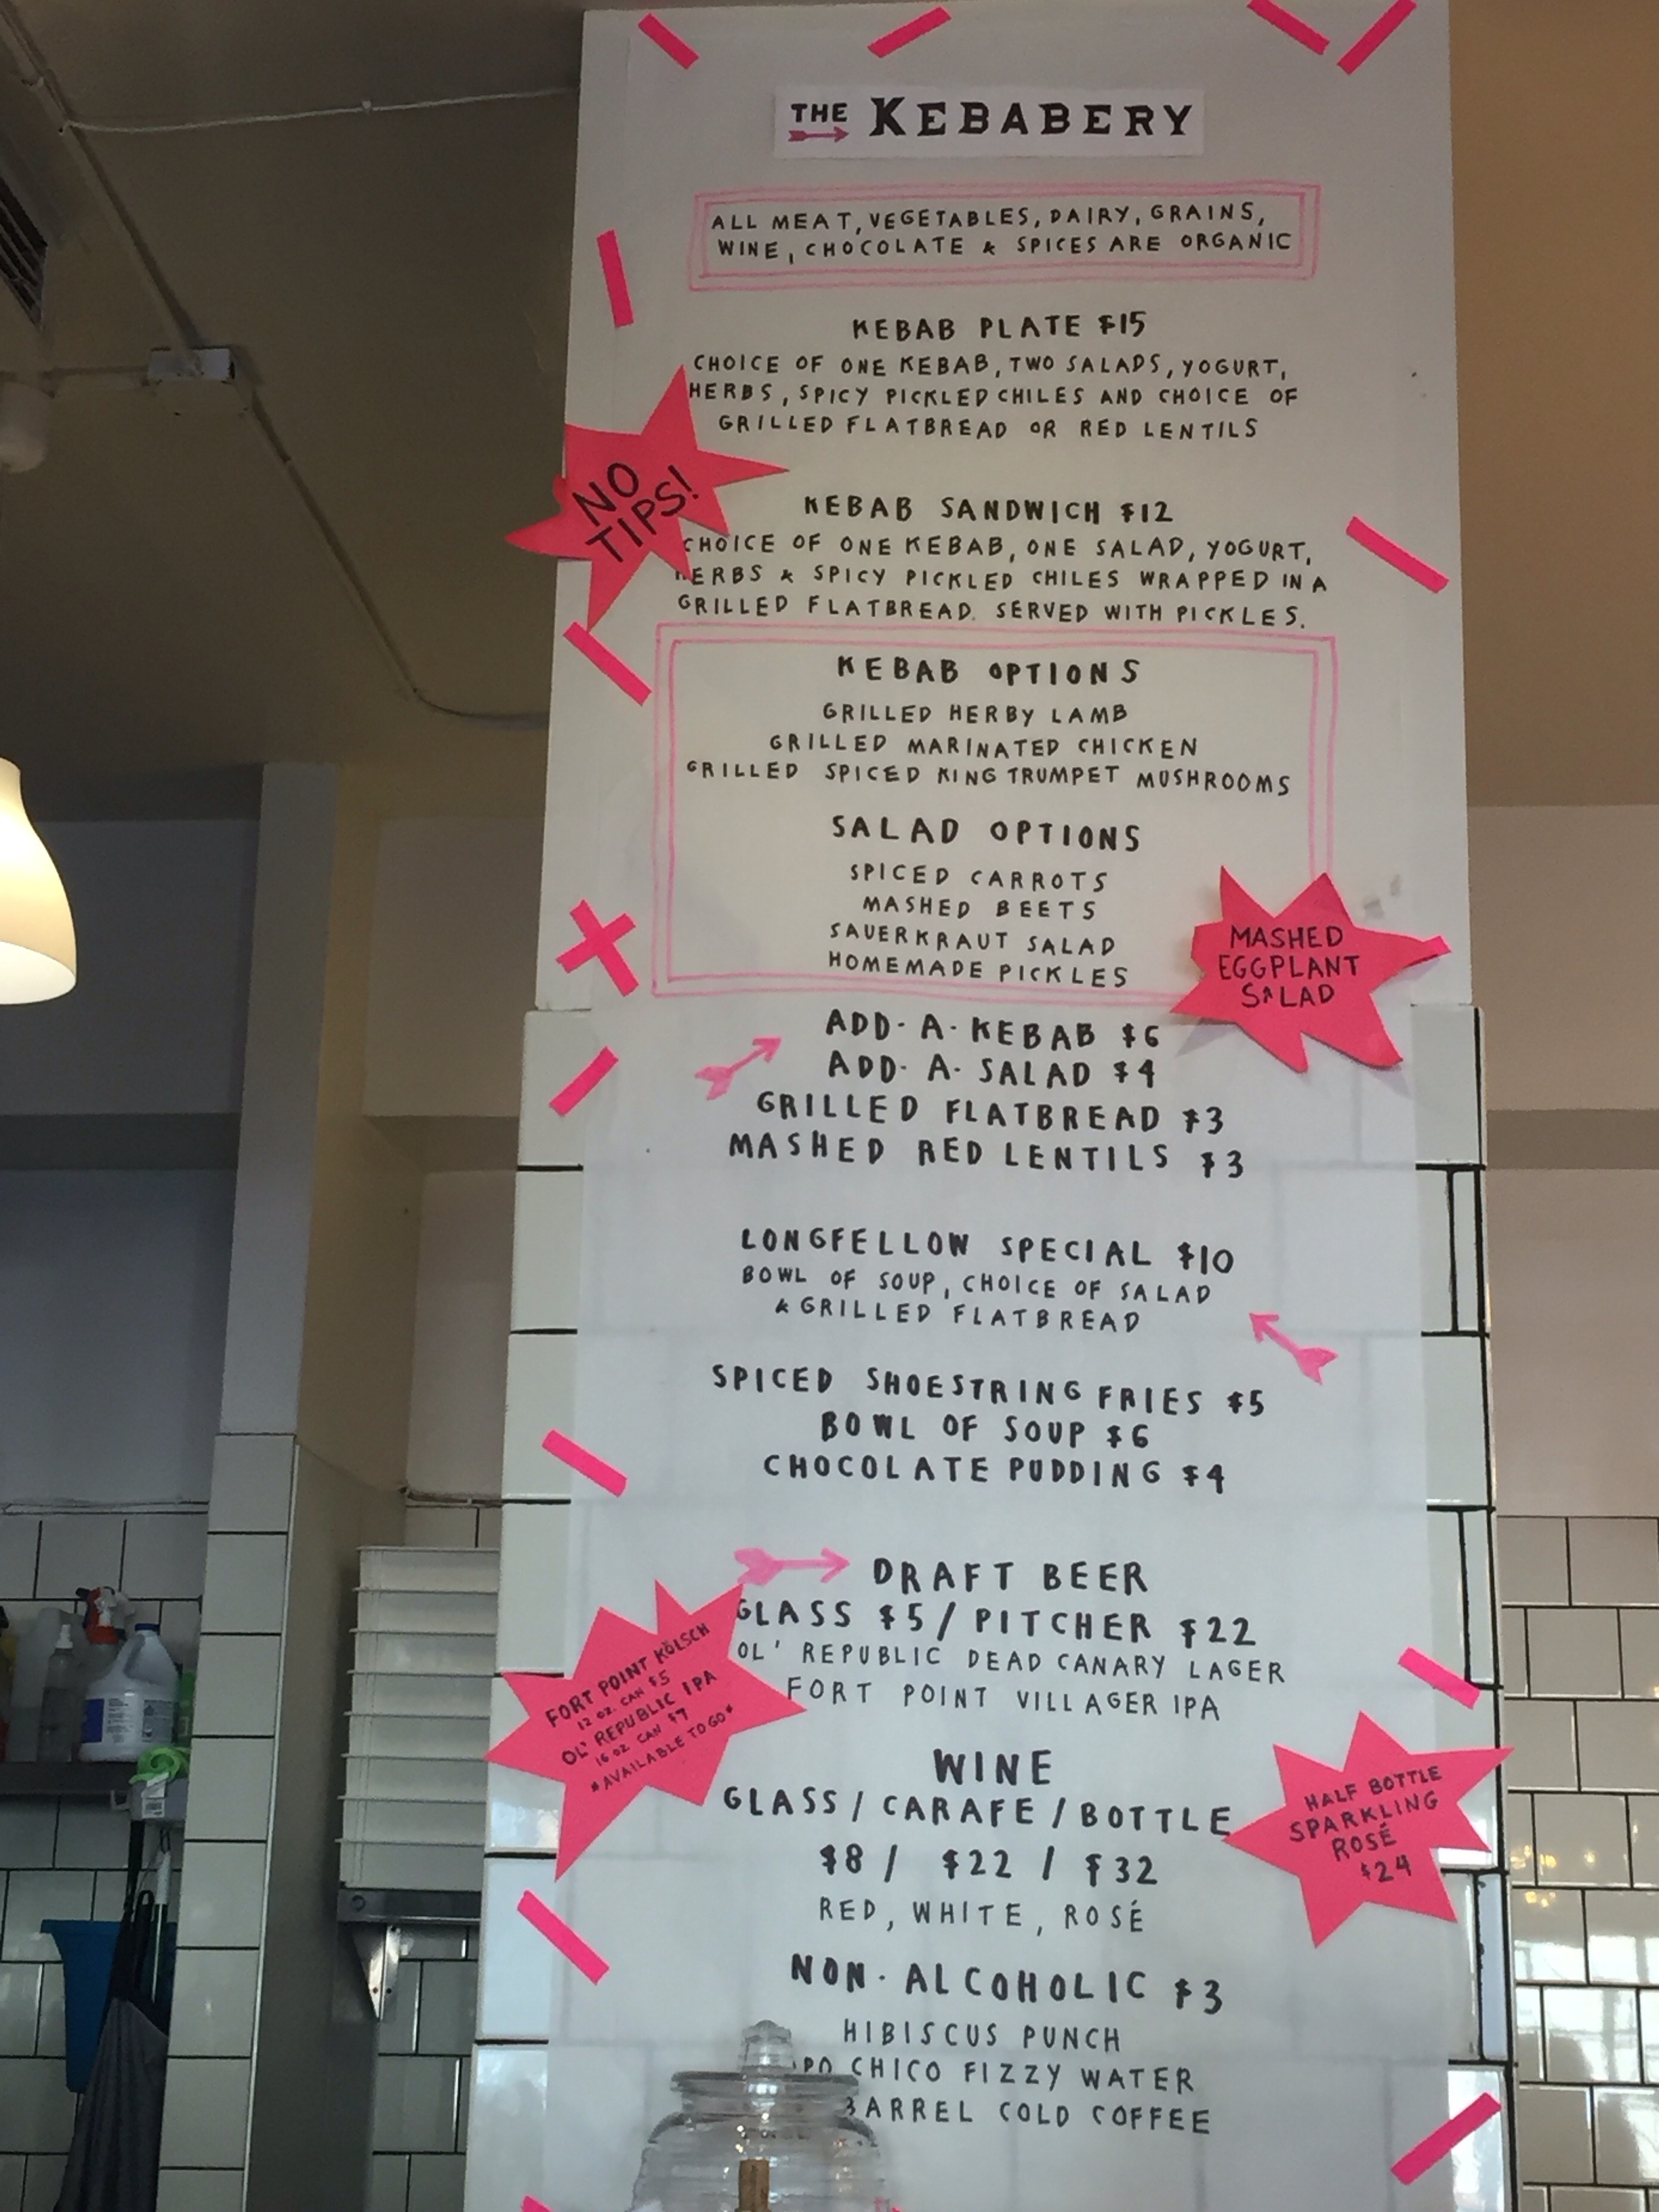 THE KEBABERY
ALL MEAT, VEGETABLES, DAIRY, GRAINS,
WINE, CHOCOLATE & SPICES ARE ORGANIC
KEBAB PLATE $15
CHOICE OF ONE KEBAB, TWO SALADS, YOGURT,
HERBS, SPICY PICKLED CHILES AND CHOICE OF
GRILLED FLATBREAD OR RED LENTILS
NO
TIPS!
KEBAB SANDWICH $12
CHOICE OF ONE KEBAB, ONE SALAD, YOGURT,
HERBS & SPICY PICKLED CHILES WRAPPED IN A
GRILLED FLATBREAD. SERVED WITH PICKLES.
KEBAB OPTIONS
GRILLED HERBY LAMB
GRILLED MARINATED CHICKEN
GRILLED SPICED KING TRUMPET MUSHROOMS
SALAD OPTIONS
SPICED CARROTS
MASHED BEETS
SAUERKRAUT SALAD
HOMEMADE PICKLES
MASHED
EGGPLANT
SALAD
ADD-A-KEBAB $6
ADD-A-SALAD $4
GRILLED FLATBREAD $3
MASHED RED LENTILS $3
LONGFELLOW SPECIAL $10
BOWL OF SOUP, CHOICE OF SALAD
& GRILLED FLATBREAD
SPICED SHOESTRING FRIES $5
BOWL OF SOUP $6
CHOCOLATE PUDDING $4
DRAFT BEER
GLASS $5/PITCHER $22
OL' REPUBLIC DEAD CANARY LAGER
FORT POINT VILLAGER IPA
FORT POINT KÖLSCH
12 OZ. CAN $5
OL' REPUBLIC IPA
16 OZ CAN $7
*AVAILABLE TO GO*
WINE
GLASS/CARAFE/BOTTLE
$8/ $22 / $32
RED, WHITE, ROSÉ
HALF BOTTLE
SPARKLING
ROSÉ
$24
NON-ALCOHOLIC $3
HIBISCUS PUNCH
CHICO FIZZY WATER
BARREL COLD COFFEE